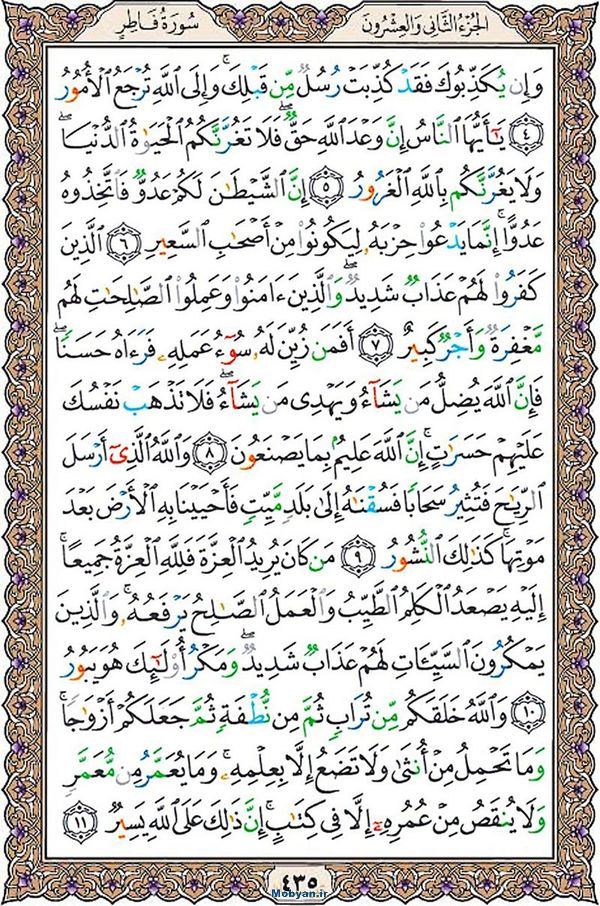 الجزء الثاني والعشرون سورة فاطر
وَإِن يُكَذِّبُوكَ فَقَدْ كُذِّبَتْ رُسُلٌ مِّن قَبْلِكَ ۚ وَإِلَى ٱللَّهِ تُرْجَعُ ٱلْأُمُورُ
﴿٤﴾ يَٰٓأَيُّهَا ٱلنَّاسُ إِنَّ وَعْدَ ٱللَّهِ حَقٌّ ۖ فَلَا تَغُرَّنَّكُمُ ٱلْحَيَوٰةُ ٱلدُّنْيَا ۖ
وَلَا يَغُرَّنَّكُم بِٱللَّهِ ٱلْغَرُورُ ﴿٥﴾ إِنَّ ٱلشَّيْطَٰنَ لَكُمْ عَدُوٌّ فَٱتَّخِذُوهُ
عَدُوًّا ۚ إِنَّمَا يَدْعُوا۟ حِزْبَهُۥ لِيَكُونُوا۟ مِنْ أَصْحَٰبِ ٱلسَّعِيرِ ﴿٦﴾ ٱلَّذِينَ
كَفَرُوا۟ لَهُمْ عَذَابٌ شَدِيدٌ ۖ وَٱلَّذِينَ ءَامَنُوا۟ وَعَمِلُوا۟ ٱلصَّٰلِحَٰتِ لَهُم
مَّغْفِرَةٌ وَأَجْرٌ كَبِيرٌ ﴿٧﴾ أَفَمَن زُيِّنَ لَهُۥ سُوٓءُ عَمَلِهِۦ فَرَءَاهُ حَسَنًا ۖ
فَإِنَّ ٱللَّهَ يُضِلُّ مَن يَشَآءُ وَيَهْدِى مَن يَشَآءُ ۖ فَلَا تَذْهَبْ نَفْسُكَ
عَلَيْهِمْ حَسَرَٰتٍ ۚ إِنَّ ٱللَّهَ عَلِيمٌۢ بِمَا يَصْنَعُونَ ﴿٨﴾ وَٱللَّهُ ٱلَّذِىٓ أَرْسَلَ
ٱلرِّيَٰحَ فَتُثِيرُ سَحَابًا فَسُقْنَٰهُ إِلَىٰ بَلَدٍ مَّيِّتٍ فَأَحْيَيْنَا بِهِ ٱلْأَرْضَ بَعْدَ
مَوْتِهَا ۚ كَذَٰلِكَ ٱلنُّشُورُ ﴿٩﴾ مَن كَانَ يُرِيدُ ٱلْعِزَّةَ فَلِلَّهِ ٱلْعِزَّةُ جَمِيعًا ۚ
إِلَيْهِ يَصْعَدُ ٱلْكَلِمُ ٱلطَّيِّبُ وَٱلْعَمَلُ ٱلصَّٰلِحُ يَرْفَعُهُۥ ۚ وَٱلَّذِينَ
يَمْكُرُونَ ٱلسَّيِّـَٔاتِ لَهُمْ عَذَابٌ شَدِيدٌ ۖ وَمَكْرُ أُو۟لَٰٓئِكَ هُوَ يَبُورُ
﴿١٠﴾ وَٱللَّهُ خَلَقَكُم مِّن تُرَابٍ ثُمَّ مِن نُّطْفَةٍ ثُمَّ جَعَلَكُمْ أَزْوَٰجًا ۚ
وَمَا تَحْمِلُ مِنْ أُنثَىٰ وَلَا تَضَعُ إِلَّا بِعِلْمِهِۦ ۚ وَمَا يُعَمَّرُ مِن مُّعَمَّرٍ
وَلَا يُنقَصُ مِنْ عُمُرِهِۦٓ إِلَّا فِى كِتَٰبٍ ۚ إِنَّ ذَٰلِكَ عَلَى ٱللَّهِ يَسِيرٌ ﴿١١﴾
٤٣٥
Mobyan.ir